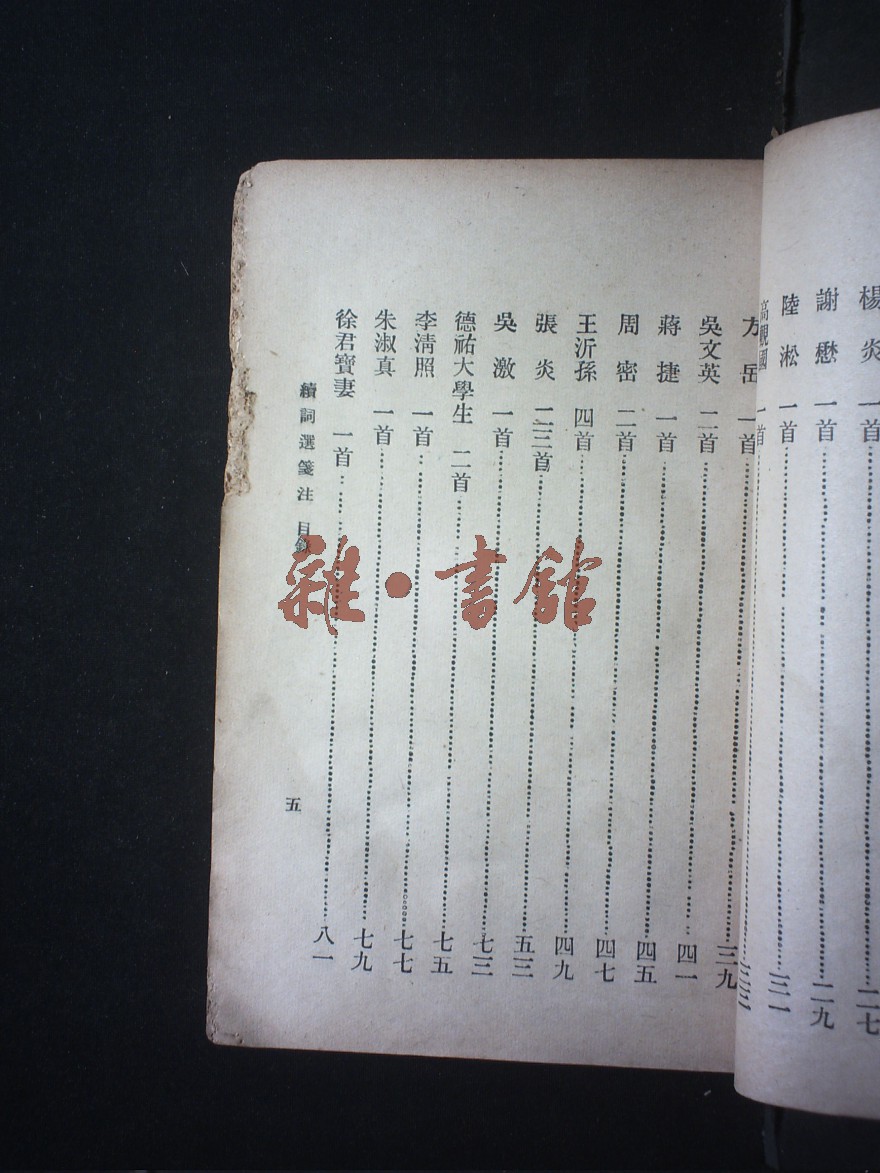 楊炎 一首 二七
謝懋 一首 二九
陸淞 一首 三一
高觀國 一首 三三
方岳 一首 三九
吳文英 二首 四一
蔣捷 一首 四五
周密 二首 四七
王沂孫 四首 四九
張炎 二三首 五三
吳激 一首 七三
德祐大學生 二首 七五
李清照 一首 七七
朱淑真 一首 七九
徐君寶妻 一首 八一
續詞選箋注 目錄 五
雜·書館